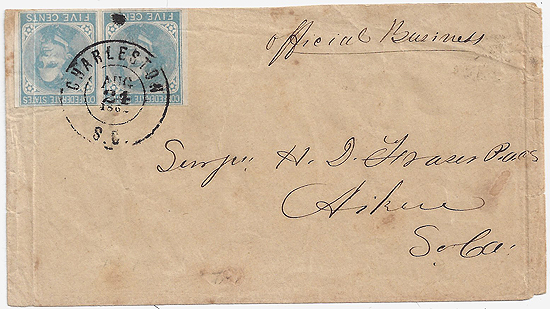 Official Business
FIVE CENTS
FIVE CENTS
CONFEDERATE STATES
CONFEDERATE STATES
CHARLESTON
AUG
24
S.C.
H. D. Fraser
Aiken
So Ca.